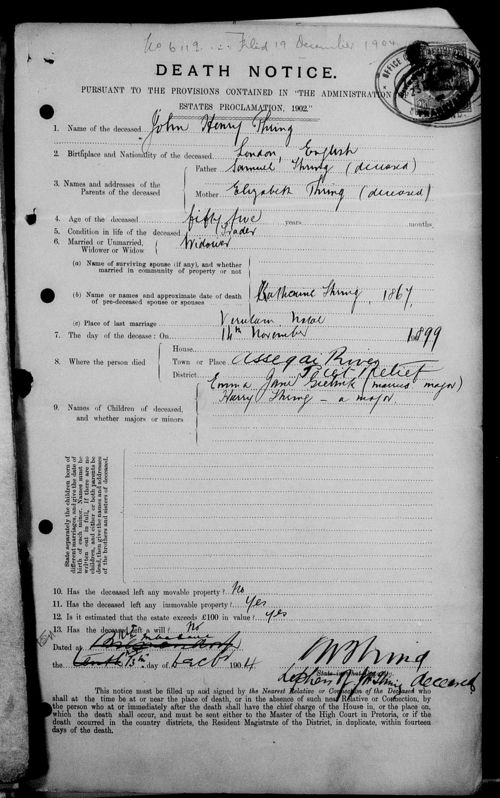 No 6119 ... Filed 19 December 1904
DEATH NOTICE.
PURSUANT TO THE PROVISIONS CONTAINED IN "THE ADMINISTRATION OF
ESTATES PROCLAMATION, 1902."
1. Name of the deceased John Henry Thring
2. Birthplace and Nationality of the deceased London, English
3. Names and addresses of the Parents of the deceased
Father Samuel Thring (deceased)
Mother Elizabeth Thring (deceased)
4. Age of the deceased fifty five years months,
5. Condition in life of the deceased Trader
6. Married or Unmarried, Widower or Widow Widower
(a) Name of surviving spouse (if any), and whether
married in community of property or not
(b) Name or names and approximate date of death
of pre-deceased spouse or spouses Katherine Thring, 1867,
(c) Place of last marriage Verulam, Natal
7. The day of the decease: On 14th November 1899
8. Where the person died
House
Town or Place Assegai River
District Piet Retief
9. Names of Children of deceased,
and whether majors or minors
Emma Jane (major)
Harry Thring – a major.
State separately the children born of
different marriages, and give the date of
birth of each minor. Names must be
written out in full. If there are no
children, and either or both parents be
dead, then give the names and addresses
of the brothers and sisters of deceased.
10. Has the deceased left any movable property? No
11. Has the deceased left any immovable property? Yes
12. Is it estimated that the estate exceeds £100 in value? yes
13. Has the deceased left a will? No
Dated at
the 13th day of Dec 1904
Thring
deceased
This notice must be filled up and signed by the Nearest Relative or Connection of the Deceased who
shall at the time be at or near the place of death, or in the absence of such near Relative or Connection, by
the person who at or immediately after the death shall have the chief charge of the House in, or the place on,
which the death shall occur, and must be sent either to the Master of the High Court in Pretoria, or if the
death occurred in the country districts, the Resident Magistrate of the District, in duplicate, within fourteen
days of the death.